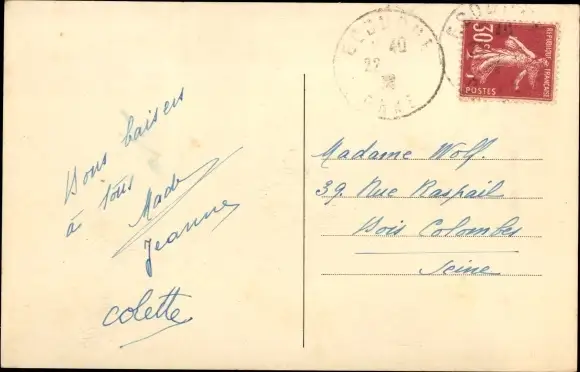 Bons baisers
à tous
Made
Jeanne
Colette
30c
REPUBLIQUE FRANCAISE
POSTES
40
22
38
Madame Wolf.
39 Rue Raspail
Bois Colombes
Seine